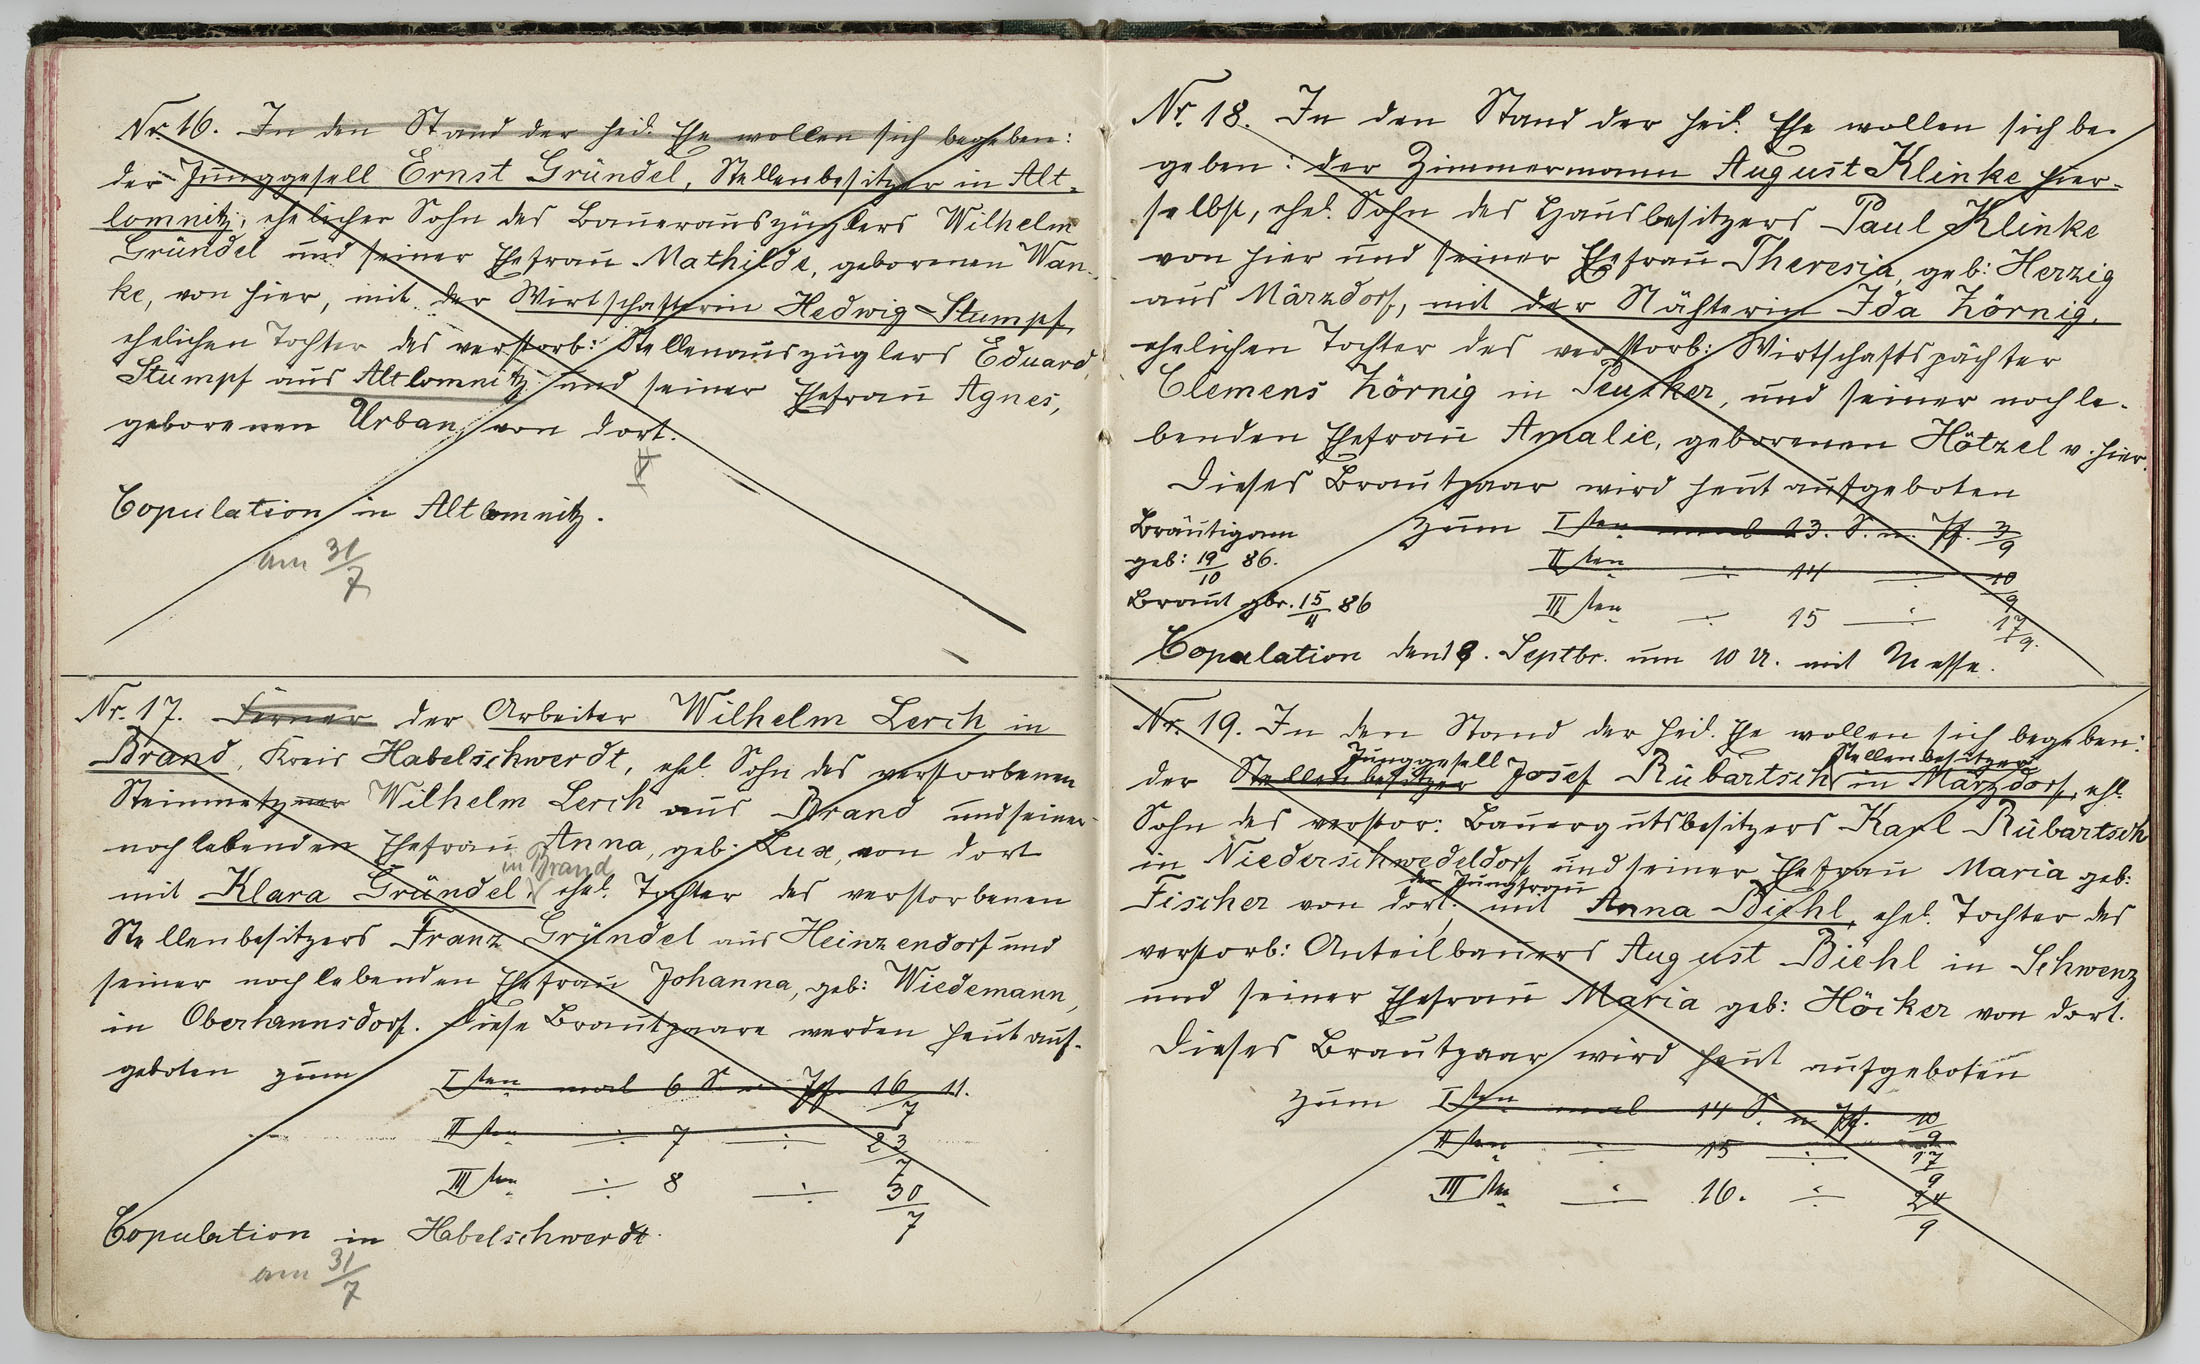 Nr. 16. In den Stand der heil. Ehe wollen sich begeben:
der Junggesell Ernst Gründel, Stellenbesitzer in Alt-
lomnitz, ehelicher Sohn des Bauerauszüglers Wilhelm
Gründel und seiner Ehefrau Mathilde, geborenen Wan-
ke, von hier, mit der Wirtschafterin Hedwig Stumpf,
ehelichen Tochter des verstorb: Stellenauszüglers Eduard
Stumpf aus Altlomnitz und seiner Ehefrau Agnes,
geborenen Urban, von dort.
Copulation in Altlomnitz.
am 31/7
Nr. 17. Ferner der Arbeiter Wilhelm Lerch in
Brand, Kreis Habelschwerdt, ehel. Sohn des verstorbenen
Steinmetzner Wilhelm Lerch aus Brand und seiner
noch lebenden Ehefrau Anna, geb: Lux, von dort
in Brand
mit Klara Gründel, ehel. Tochter des verstorbenen
Stellenbesitzers Franz Gründel aus Heinzendorf und
seiner noch lebenden Ehefrau Johanna, geb: Wiedemann,
in Oberhannsdorf. Diese Brautpaare werden heut auf-
geboten zum Iten mal 6 S. n. Pf. 16/7 11.
IIten ÷ 7 ÷ 23/7
IIIten ÷ 8 ÷ 30/7
Copulation in Habelschwerdt.
am 31/7
Nr. 18. In den Stand der heil. Ehe wollen sich be-
geben: der Zimmermann August Klinke hier-
selbst, ehel. Sohn des Hausbesitzers Paul Klinke
von hier und seiner Ehefrau Theresia, geb: Herzig
aus Märzdorf, mit der Nähterin Ida Zörnig,
ehelichen Tochter des verstorb: Wirtschaftspächter
Clemens Zörnig in Peuker, und seiner noch le-
benden Ehefrau Amalie, geborenen Hötzel v. hier.
Dieses Brautpaar wird heut aufgeboten
Bräutigam zum Iten mal 13. S. n. Pf. 3/9
geb: 19/10 86. IIten ÷ 14 ÷ 10/9
Braut gbr. 15/4 86 IIIten ÷ 15 ÷ 17/9.
Copulation den 18. Septbr. um 10 U. mit Messe.
Nr. 19. In den Stand der heil. Ehe wollen sich begeben:
Junggesell Stellenbesitzer
der Stellenbesitzer Josef Rübartsch in Märzdorf, ehl.
Sohn des verstor: Bauergutsbesitzers Karl Rübartsch
in Niederschwedeldorf und seiner Ehefrau Maria geb:
der Jungfrau
Fischer von dort. mit Anna Biehl, ehel. Tochter des
verstorb: Anteilbauers August Biehl in Schwenz
und seiner Ehefrau Maria geb: Höcker von dort.
Dieses Brautpaar wird heut aufgeboten
zum Iten mal 14 S. n. Pf. 10/9
IIten ÷ 15 ÷ 17/9
IIIten ÷ 16. ÷ 24/9